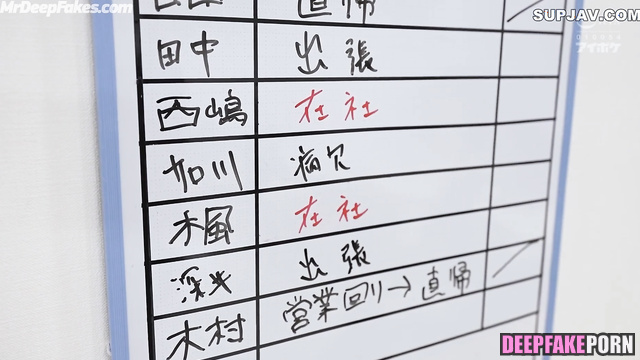 MrDeepFakes.com
SUPJAV.COM
アイポケ
直帰
田中 出張
西嶋 在社
加川 病欠
楓 在社
深米 出張
木村 営業回り→直帰
DEEPFAKEPORN